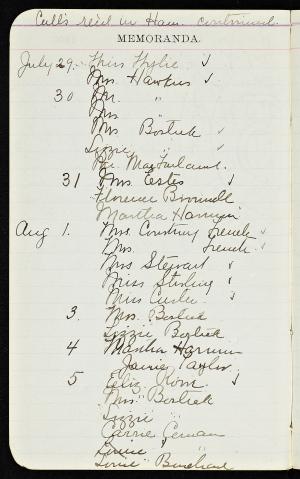 Call's rec'd in Ham. continued.
MEMORANDA.
July 29. Miss
Mrs Hawkins ✓
30 Mr. "
Mrs "
Mrs Bostick ✓
Lizzie "
Mr. MacFarland.
31 Mrs Estes ✓
Florence
Martha Hannum
Aug 1. Mrs. Courtney French ✓
Mrs. French ✓
Mrs Stewart ✓
Miss Sterling ✓
Mrs ✓
3. Mrs. Bostick
Lizzie Bostick
4 Martha Hannum
Taylor
5 Eliz. ✓
Mrs. Bostick
Lizzie "
Carrie
"
Louie